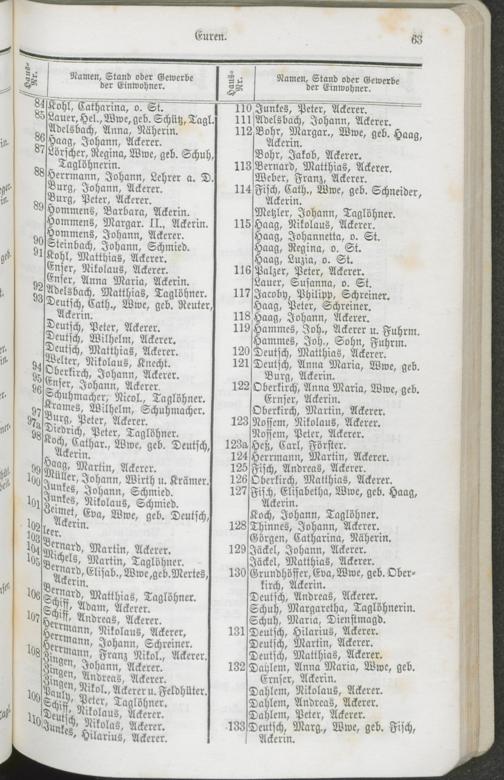 Euren.
63
Haus-Nr.
Namen, Stand oder Gewerbe
der Einwohner.
84 Kohl, Catharina, o. St.
85 Lauer, Hel., Wwe, geb. Schütz, Tagl.
Adelsbach, Anna, Näherin.
86 Haag, Johann, Ackerer.
87 Lörscher, Regina, Wwe, geb. Schuh,
Taglöhnerin.
88 Herrmann, Johann, Lehrer a. D.
Burg, Johann, Ackerer.
Burg, Peter, Ackerer.
89 Hommens, Barbara, Ackerin.
Hommens, Margar. II., Ackerin.
Hommens, Johann, Ackerer.
90 Steinbach, Johann, Schmied.
91 Kohl, Matthias, Ackerer.
Enser, Nikolaus, Ackerer.
Enser, Anna Maria, Ackerin.
92 Adelsbach, Matthias, Taglöhner.
93 Deutsch, Cath., Wwe, geb. Reuter,
Ackerin.
Deutsch, Peter, Ackerer.
Deutsch, Wilhelm, Ackerer.
Deutsch, Matthias, Ackerer.
Welter, Nikolaus, Knecht.
94 Oberkirch, Johann, Ackerer.
95 Enser, Johann, Ackerer.
96 Schuhmacher, Nicol., Taglöhner.
Krames, Wilhelm, Schuhmacher.
97 Burg, Peter, Ackerer.
97a Diedrich, Peter, Taglöhner.
98 Koch, Cathar., Wwe, geb. Deutsch,
Ackerin.
Haag, Martin, Ackerer.
99 Müller, Johann, Wirth u. Krämer.
100 Junkes, Johann, Schmied.
Junkes, Nikolaus, Schmied.
101 Zeimet, Eva, Wwe, geb. Deutsch,
Ackerin.
102 leer.
103 Bernard, Martin, Ackerer.
104 Michels, Martin, Taglöhner.
105 Bernard, Elisab., Wwe, geb. Mertes,
Ackerin.
Bernard, Matthias, Taglöhner.
106 Schiff, Adam, Ackerer.
Schiff, Andreas, Ackerer.
107 Herrmann, Nikolaus, Ackerer,
Herrmann, Johann, Schreiner.
Herrmann, Franz Nikol., Ackerer.
108 Zingen, Johann, Ackerer.
Zingen, Andreas, Ackerer.
Zingen, Nikol., Ackerer u. Feldhüter.
Pauly, Peter, Taglöhner.
109 Schiff, Nikolaus, Ackerer.
Deutsch, Nikolas, Ackerer.
110 Junkes, Hilarius, Ackerer.
Haus-Nr.
Namen, Stand oder Gewerbe
der Einwohner.
110 Junkes, Peter, Ackerer.
111 Adelsbach, Johann, Ackerer.
112 Bohr, Margar., Wwe, geb. Haag,
Ackerin.
Bohr, Jakob, Ackerer.
113 Bernard, Matthias, Ackerer.
Weber, Franz, Ackerer.
114 Fisch, Cath., Wwe, geb. Schneider,
Ackerin.
Metzler, Johann, Taglöhner.
115 Haag, Nikolaus, Ackerer.
Haag, Johannetta, o. St.
Haag, Regina, o. St.
Haag, Luzia, o. St.
116 Palzer, Peter, Ackerer.
Lauer, Susanna, o. St.
117 Jacoby, Philipp, Schreiner.
Haag, Peter, Schreiner.
118 Haag, Johann, Ackerer.
119 Hammes, Joh., Ackerer u. Fuhrm.
Hammes, Joh., Sohn, Fuhrm.
120 Deutsch, Matthias, Ackerer.
121 Deutsch, Anna Maria, Wwe, geb.
Burg, Ackerin.
122 Oberkirch, Anna Maria, Wwe, geb.
Ernser, Ackerin.
Oberkirch, Martin, Ackerer.
123 Nossem, Nikolaus, Ackerer.
Nossem, Peter, Ackerer.
123a Heß, Carl, Förster.
124 Herrmann, Martin, Ackerer.
125 Fisch, Andreas, Ackerer.
126 Oberkirch, Matthias, Ackerer.
127 Fisch, Elisabetha, Wwe, geb. Haag,
Ackerin.
Koch, Johann, Taglöhner.
128 Thinnes, Johann, Ackerer.
Görgen, Catharina, Näherin.
129 Jäckel, Johann, Ackerer.
Jäckel, Matthias, Ackerer.
130 Grundhöffer, Eva, Wwe, geb. Ober-
kirch, Ackerin.
Deutsch, Andreas, Ackerer.
Schuh, Margaretha, Taglöhnerin.
Schuh, Maria, Dienstmagd.
131 Deutsch, Hilarius, Ackerer.
Deutsch, Martin, Ackerer.
Deutsch, Matthias, Ackerer.
132 Dahlem, Anna Maria, Wwe, geb.
Ernser, Ackerin.
Dahlem, Nikolaus, Ackerer.
Dahlem, Andreas, Ackerer.
Dahlem, Peter, Ackerer.
133 Deutsch, Marg., Wwe, geb. Fisch,
Ackerin.